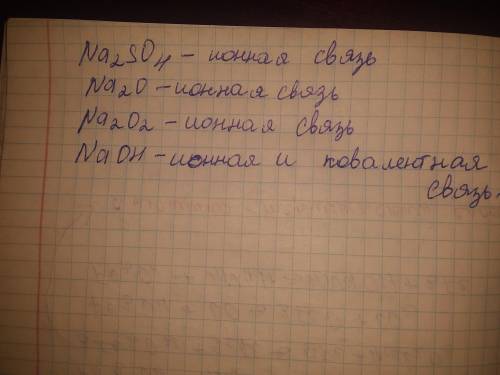 Na₂SO₄ – ионная связь
Na₂O – ионная связь
Na₂O₂ – ионная связь
NaOH – ионная и ковалентная
связь.